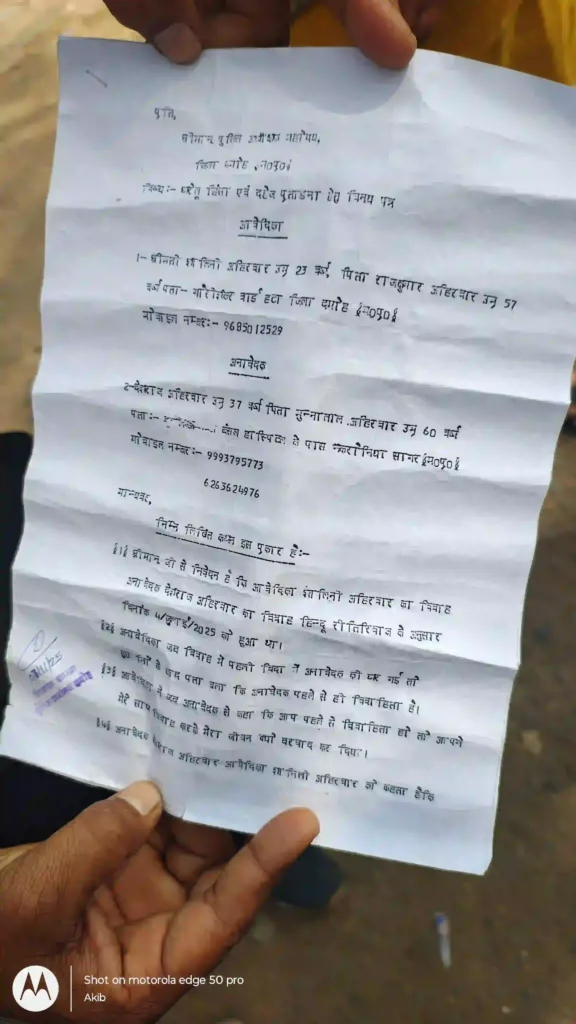 प्रति,
श्रीमान् पुलिस अधीक्षक महोदय,
जिला दमोह §म0प्र0§
विषय:- घरेलू हिंसा एवं दहेज प्रताड़ना हेतु विनय पत्र
आवेदिका
1- श्रीमती शालिनी अहिरवार उम्र 23 वर्ष, पिता राजकुमार अहिरवार उम्र 57
वर्ष पता- गौरीशंकर वार्ड हटा जिला दमोह §म0प्र0§
मोबाइल नम्बर:- 9685012529
अनावेदक
2- देशराज अहिरवार उम्र 37 वर्ष पिता मुन्नालाल अहिरवार उम्र 60 वर्ष
पता:- बंसल हास्पिटल के पास मकरोनिया सागर §म0प्र0§
मोबाइल नम्बर:- 9993795773
6263624976
मान्यवर,
निम्न लिखित कथन इस प्रकार है:-
§1§ श्रीमान् जी से निवेदन है कि आवेदिका शालिनी अहिरवार का विवाह
अनावेदक देशराज अहिरवार का विवाह हिन्दू रीतिरिवाज के अनुसार
दिनांक 4/जुलाई/2025 को हुआ था।
§2§ अनावेदिका जब विवाह में पहली विदा में अनावेदक के घर गई तो
के बाद पता चला कि अनावेदक पहले से ही विवाहिता है।
§3§ आवेदिका ने जब अनावेदक से कहा कि आप पहले से विवाहिता हो तो आपने
मेरे साथ विवाह करके मेरा जीवन क्यों बरबाद कर दिया।
§4§ अनावेदक देशराज अहिरवार आवेदिका शालिनी अहिरवार को कहता हैकि
Shot on motorola edge 50 pro
Akib